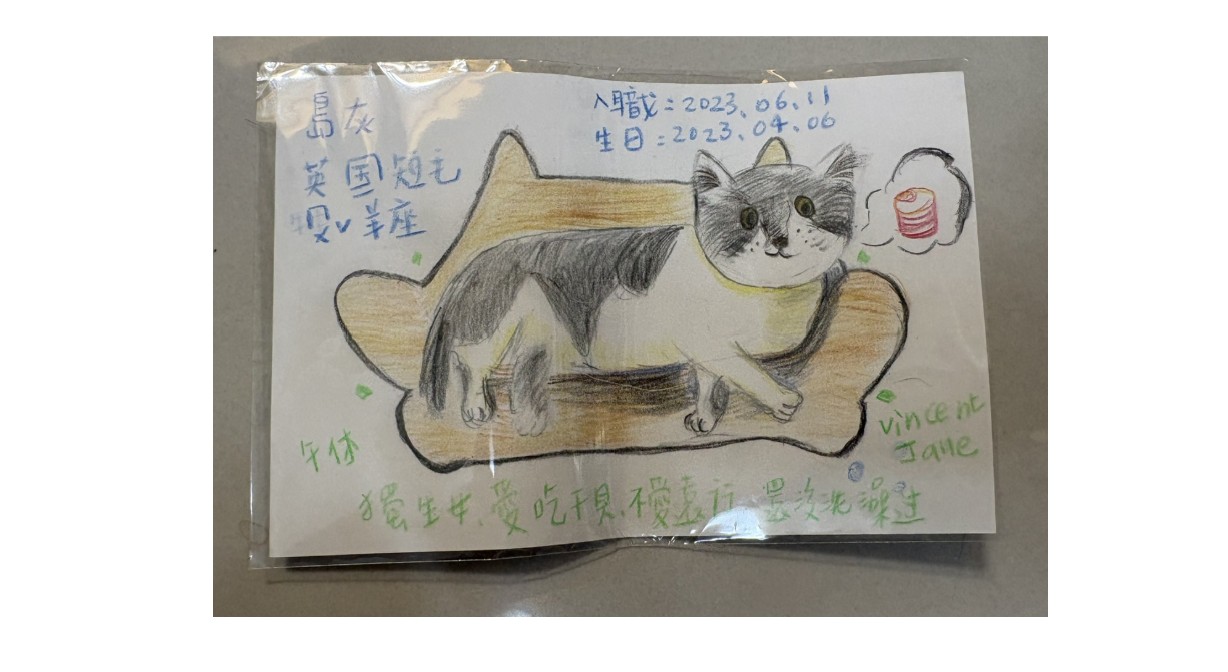 島灰
英国短毛
羊座
入職:2023、06、11
生日:2023、04、06
午休
vincent
Jane
獨生女、愛吃干貝、不愛遠行、還没洗澡过